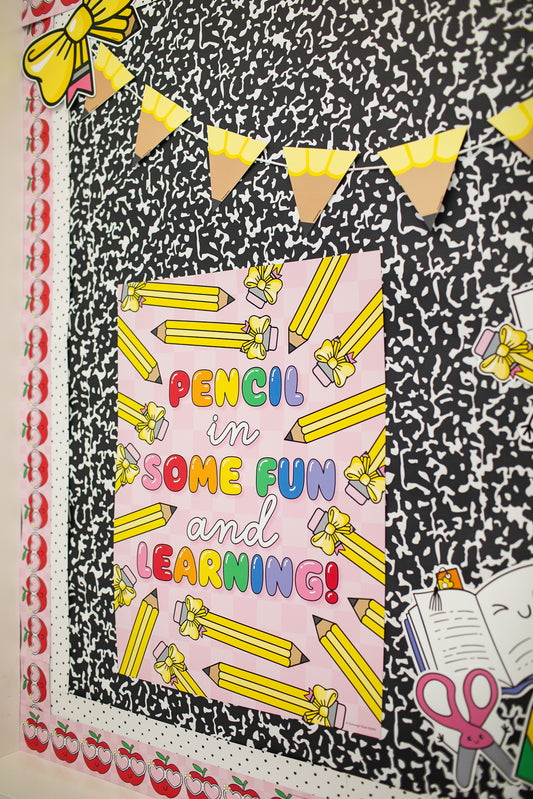 PENCIL
in
SOME FUN
and
LEARNING!